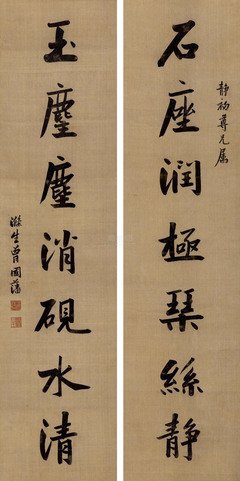 静初尊兄属
石座润極琹絲静
玉麈麈消硯水清
滌生曾国藩